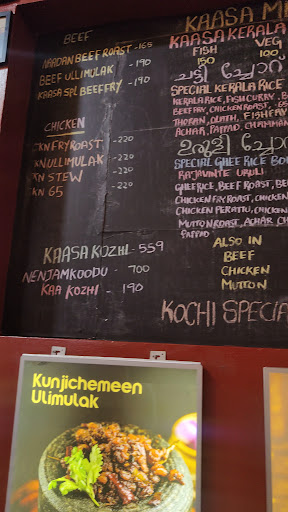 BEEF
NARDAN BEEF ROAST -165
BEEF ULLIMULAK - 190
KAASA SPL BEEFFRY - 190
CHICKEN
CKN FRY ROAST - 220
CKN ULLIMULAK - 220
CKN STEW - 220
CKN 65 - 220
KAASA KOZHI - 559
NENJAMKOODU - 700
KAA KOZHI - 190
KAASA
KAASA KERALA
FISH VEG
150 100
ചട്ടി ച്ചോറ്
SPECIAL KERALA RICE
KERALA RICE, FISH CURRY,
BEEF FRY, CHICKEN ROAST,
THORAN, OLATH, FISH FRY
ACHAR, PAPAD,
ഉരുളി ച്ചോറ്
SPECIAL GHEE RICE
RAJAVINTE URULI
GHEE RICE, BEEF ROAST,
CHICKEN FRY ROAST, CHICKEN
CHICKEN PERATTU, CHICKEN
MUTTON ROAST, ACHAR
PAPPAD
ALSO IN
BEEF
CHICKEN
MUTTON
KOCHI
Kunjichemeen
Ulimulak